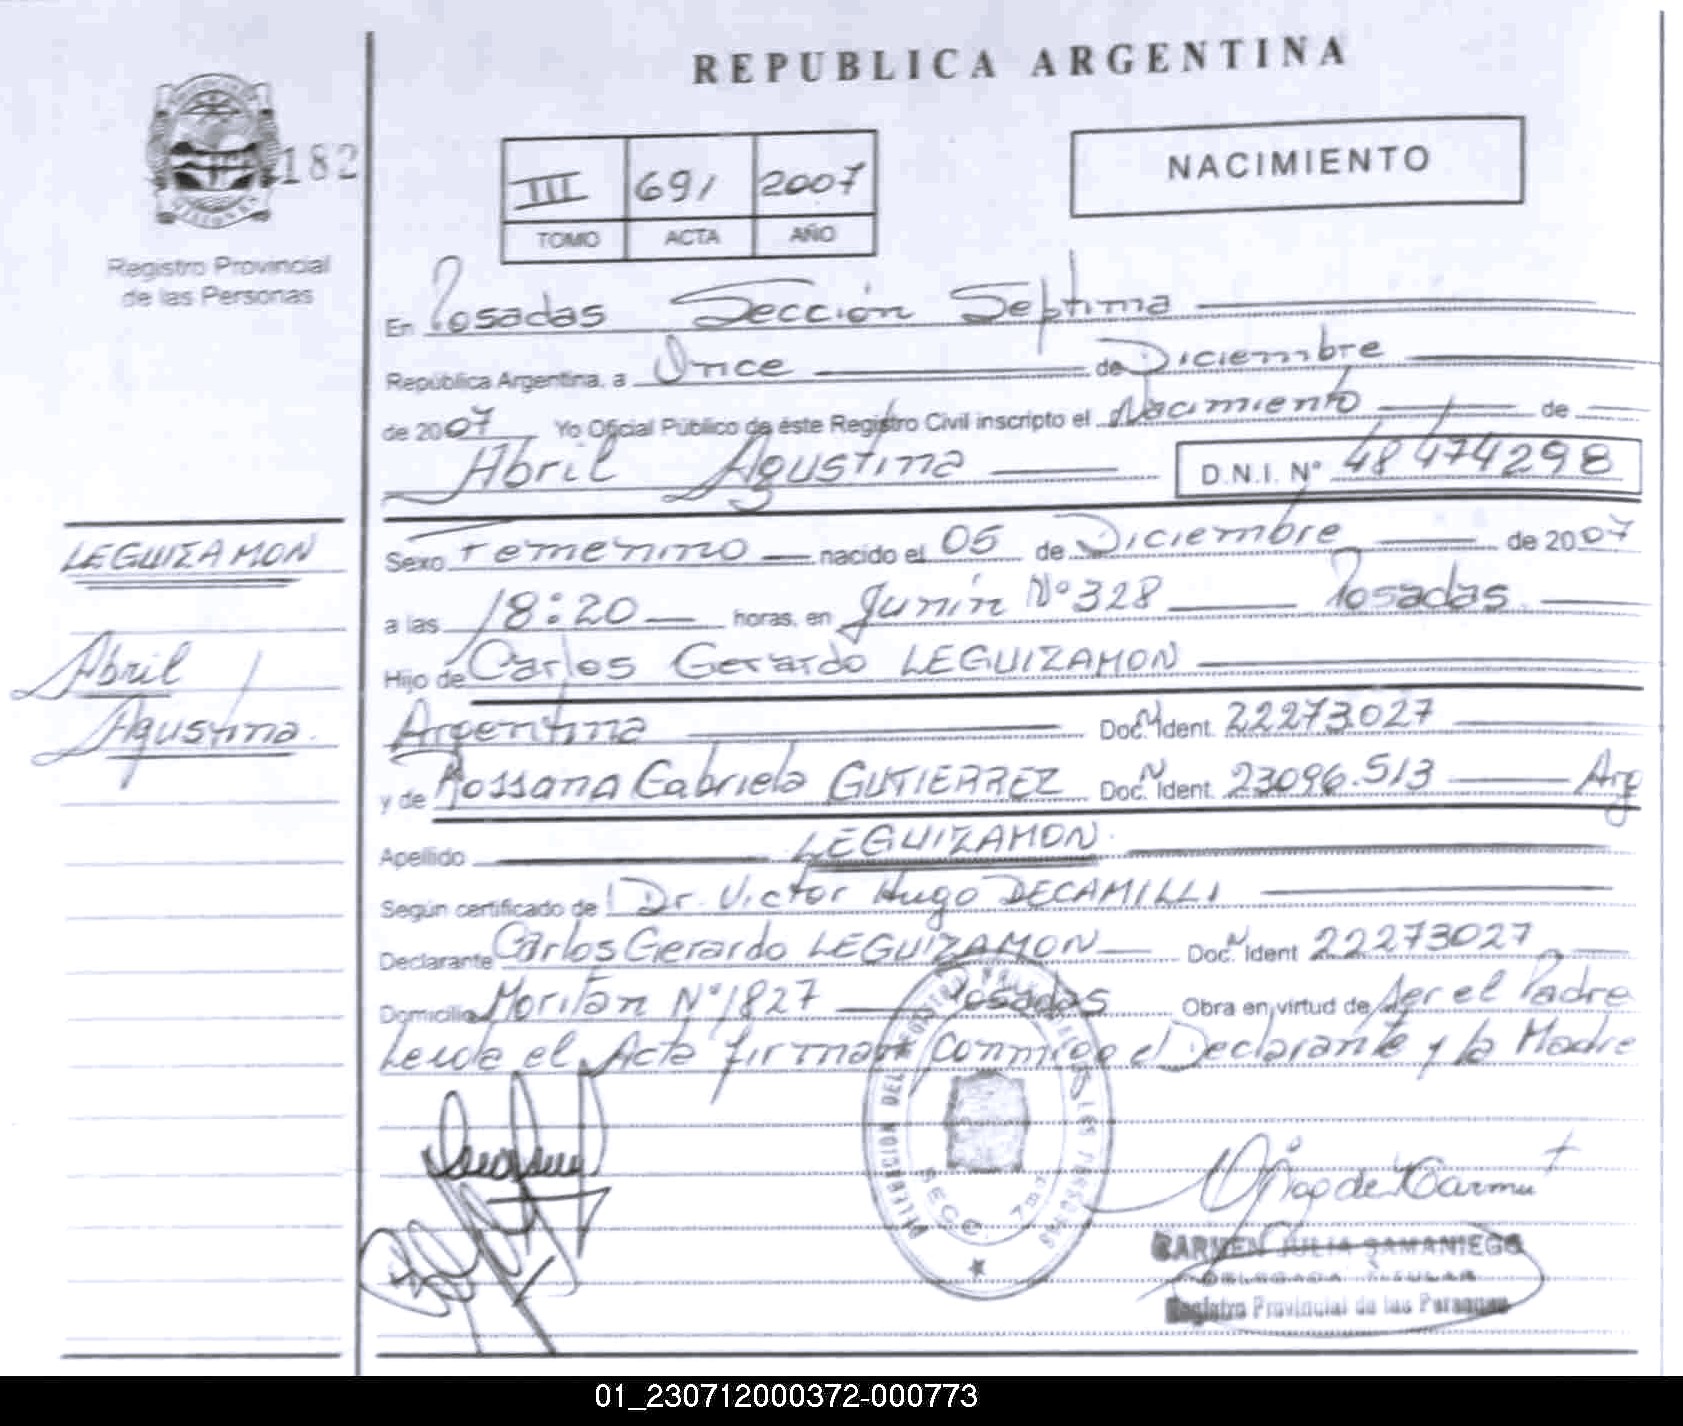 REPUBLICA ARGENTINA
182
NACIMIENTO
III 691 2007
TOMO ACTA AÑO
Registro Provincial
de las Personas
En Posadas Sección Septima
República Argentina, a Once de Diciembre
de 2007 Yo Oficial Público de éste Registro Civil inscripto el Nacimiento de
Abril Agustina D.N.I. Nº 48474298
LEGUIZAMON
Abril
Agustina.
Sexo Femenino nacido el 05 de Diciembre de 2007
a las 18:20 horas, en Junín Nº 328 Posadas
Hijo de Carlos Gerardo LEGUIZAMON
Argentina Doc. N Ident. 22273.027
y de Rossana Gabriela GUTIERREZ Doc. N Ident. 23096.513 Arg
Apellido LEGUIZAMON.
Según certificado de Dr. Victor Hugo DECAMILLI
Declarante Carlos Gerardo LEGUIZAMON Doc. N Ident 22273027
Domicilio Nº 1827 Posadas Obra en virtud de Ser el Padre
Leida el Acta firman conmigo el Declarante y la Madre
DELEGACION DEL REGISTRO PROVINCIAL DE LAS PERSONAS
SECC. 7ma
CARMEN JULIA SAMANIEGO
DELEGADA TITULAR
Registro Provincial de las Personas
01_230712000372-000773